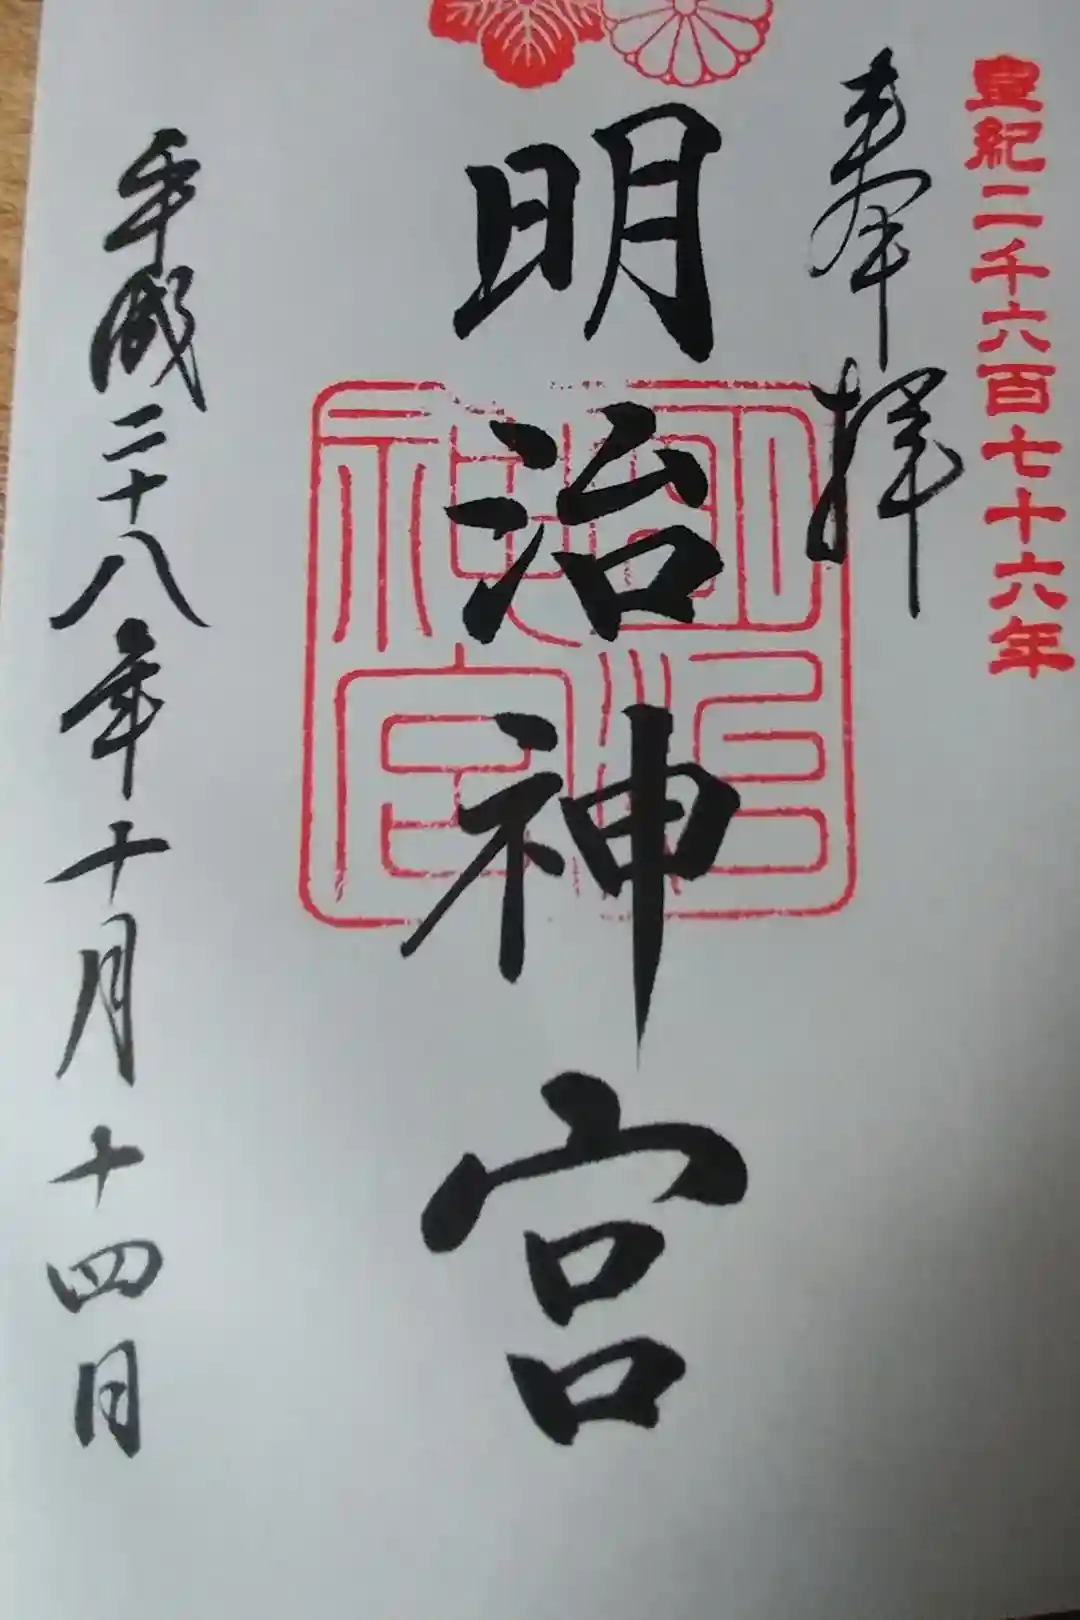 皇紀二千六百七十六年
奉拝
明治神宮
明治神宮
平成二十八年十月十四日